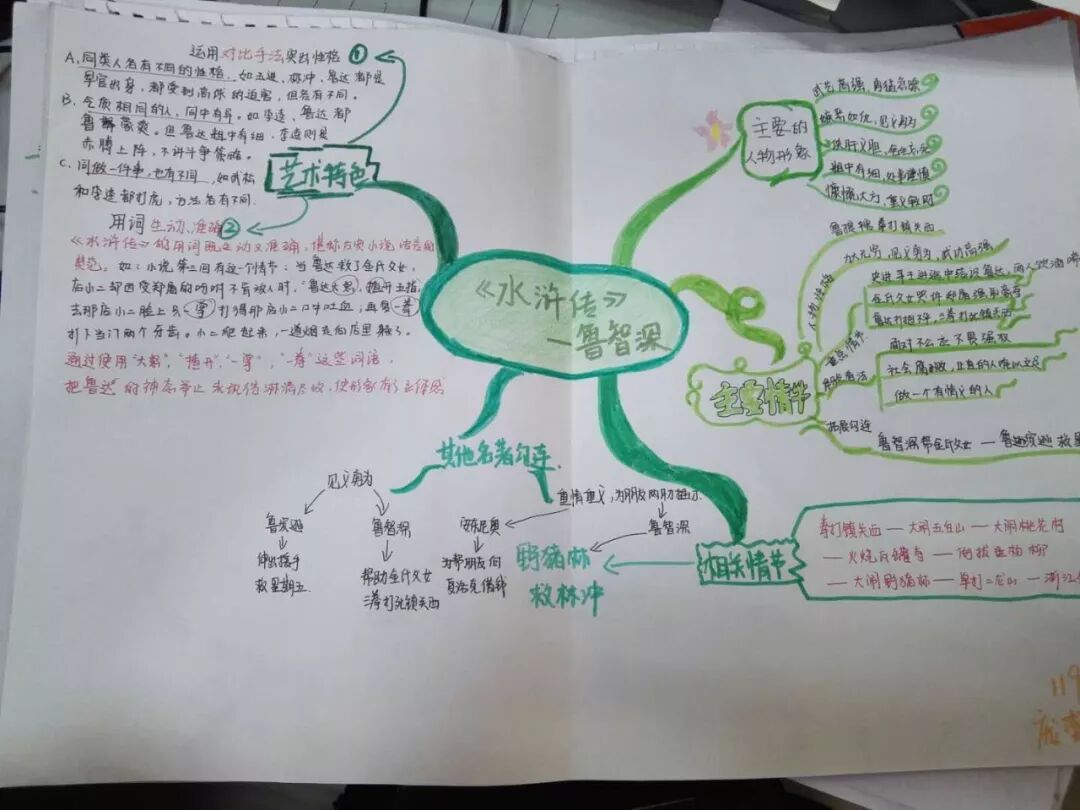 运用对比手法突出性格 ①
A、同类人各有不同的性格，如王进、林冲、鲁达都是
军官出身，都受到高俅的迫害，但各有不同。
B、气质相同的人，同中有异。如李逵、鲁达都
鲁莽豪爽。但鲁达粗中有细，李逵则是
赤膊上阵，不讲斗争策略。
C、同做一件事，也有不同，如武松
和李逵都打虎，方法各有不同.
艺术特色
用词生动、准确②
《水浒传》的用词既生动又准确，堪称古典小说语言的
典范。如：小说第三回有这个情节：当鲁达救了金氏父女，
店小二却因受郑屠的吩咐不肯放人时，“鲁达大怒，揸开五指，
去那店小二脸上只一掌，打得那店小二口中吐血，再复一拳
打下当门两个牙齿。小二爬起来，一道烟走向店里躲了。
通过使用“大怒”，“揸开”，“一掌”，“一拳”这些词语，
把鲁达的神态举止
《水浒传》
—鲁智深
主要的
人物形象
武艺高强，
嫉恶如仇，见义勇为
侠肝义胆，
粗中有细，
慷慨大方，
主要情节
鲁提辖拳打镇关西
人物性格
力大无穷，见义勇为，武功高强
重点情节
史进等于进酒中结识鲁达，两人
金氏父女哭诉
三拳打死镇关西
启发看法
面对不公正不畏强权
社会腐败，正直的人难以立足
做一个有情义的人
拓展勾连
鲁智深帮金氏父女 — 鲁滨孙救星
其他名著勾连
见义勇为
鲁滨逊
伸出援手
救星期五.
鲁智深
帮助金氏父女
三拳打死镇关西
重情重义，为朋友两肋插刀.
安东尼奥
为帮朋友向
夏洛克借钱
鲁智深
野猪林
救林冲
相关情节
拳打镇关西 — 大闹五台山 — 大闹桃花村
— 火烧瓦罐寺 — 倒拔垂杨柳
— 大闹野猪林 — 单打二龙山 — 浙江
119